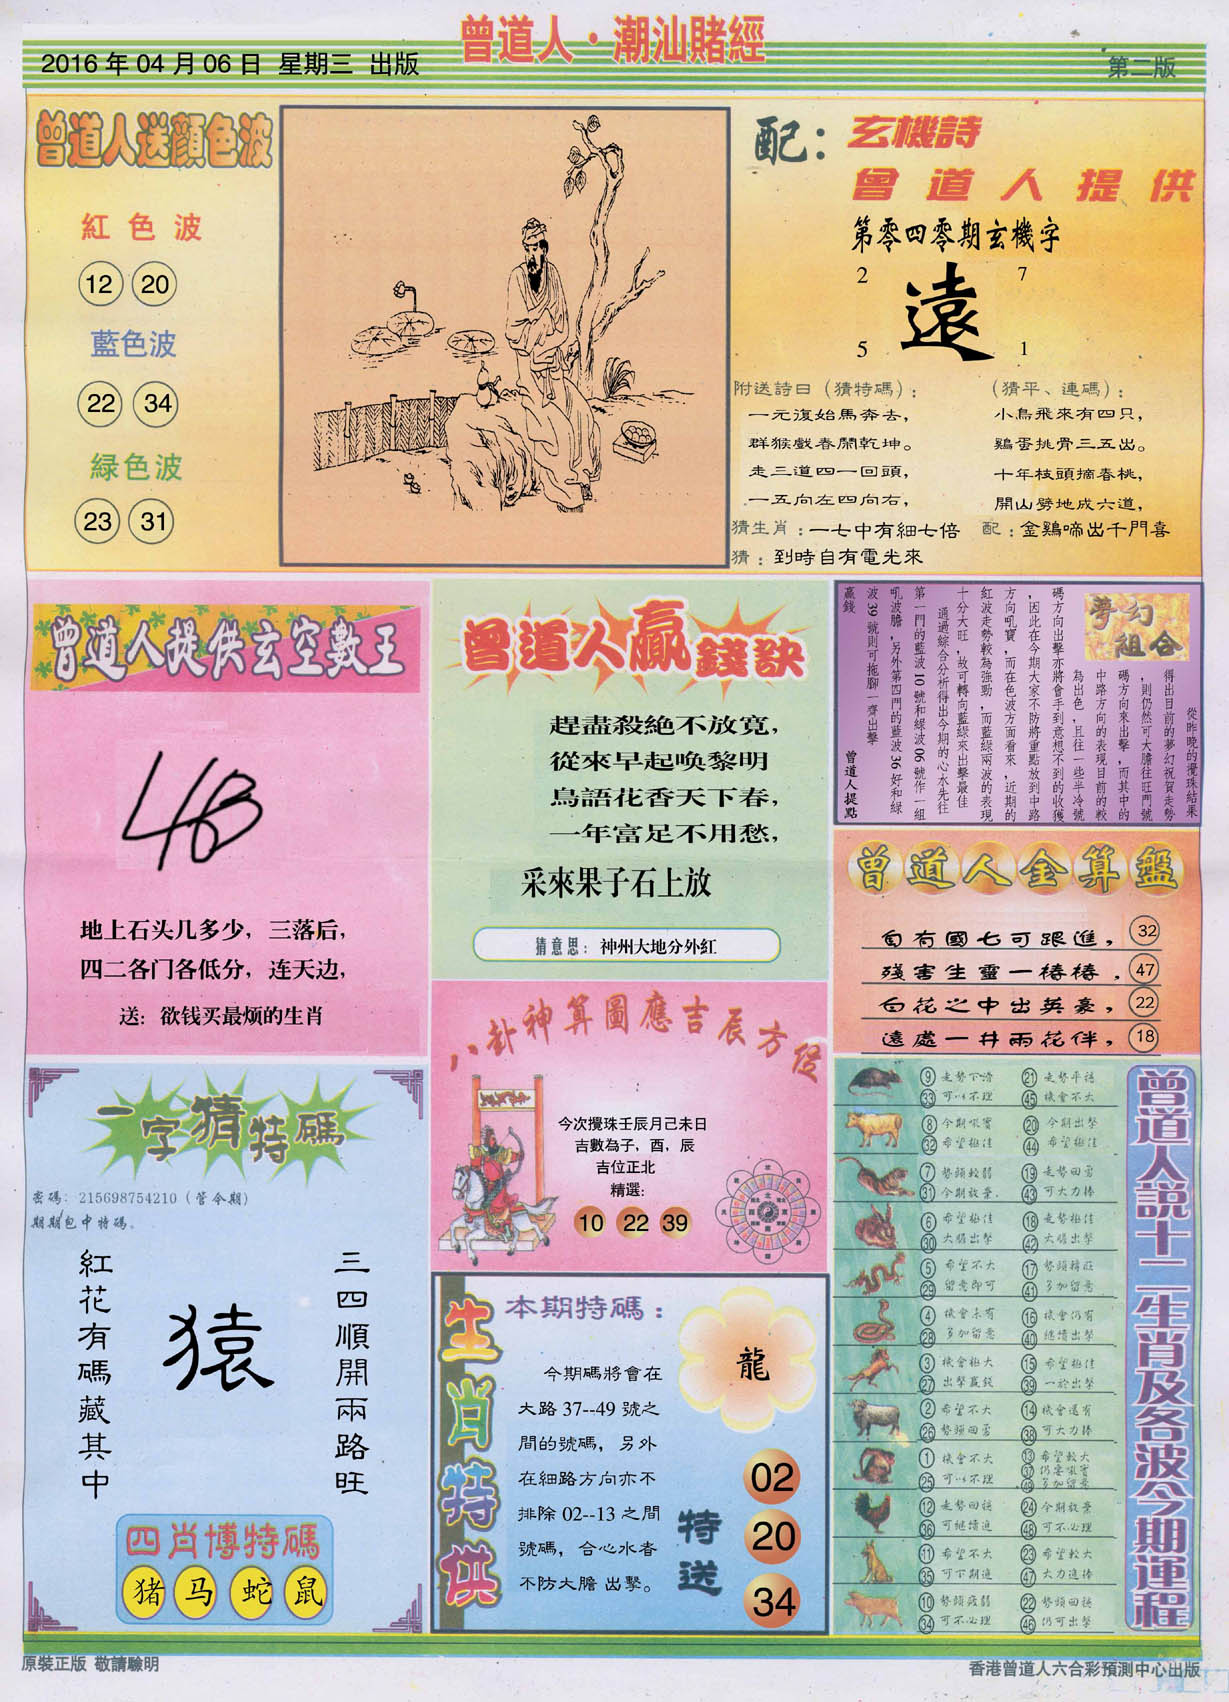 曾道人·潮汕賭經
2016 年 04 月 06 日 星期三 出版
第二版
曾道人送顔色波
紅色波
12 20
藍色波
22 34
緑色波
23 31
配：玄機詩
曾道人提供
第零四零期玄機字
2 7
遠
5 1
附送詩曰（猜特碼）：
一元復始馬奔去，
群猴戲春鬧乾坤。
走三道四一回頭，
一五向左四向右，
（猜平、連碼）：
小鳥飛來有四只，
鷄蛋挑骨三五出。
十年枝頭摘春桃，
開山劈地成六道，
猜生肖：一七中有細七倍
配：金鷄啼出千門喜
猜：到時自有電光來
曾道人提供玄空數王
地上石头几多少，三落后，
四二各门各低分，连天边，
送：欲钱买最烦的生肖
曾道人贏錢訣
趕盡殺絶不放寬，
從來早起唤黎明
鳥語花香天下春，
一年富足不用愁，
采來果子石上放
猜意思：神州大地分外紅
夢幻組合
從昨晚的攪珠結果
得出目前的夢幻祝賀走勢
，則仍然可大膽往旺門號
碼方向來出擊，而其中的
中路方向的表現目前的較
為出色，且往一些半冷號
碼方向出擊亦將會手到意想不到的收獲
，因此在今期大家不防將重點放到中路
方向吼寶，而在色波方面看來，近期的
紅波走勢較為強勁，而藍綠兩波的表現
十分大旺，故可轉向藍綠來出擊最佳
通過綜合分析得出今期的心水先往
第一門的藍波 10 號和綠波 06 號作一組
吼波膽，另外第四門的藍波 36 好和綠
波 39 號則可拖腳一齊出擊
贏錢
曾道人提點
曾道人金算盤
自有國七可跟進， 32
殘害生靈一樁樁， 47
白花之中出英豪， 22
遠處一井兩花伴， 18
八卦神算圖應吉辰方位
今次攪珠壬辰月己未日
吉數為子，酉，辰
吉位正北
精選:
10 22 39
一字猜特碼
密碼：215698754210（管今期）
期期包中特碼。
三四順開兩路旺
猿
紅花有碼藏其中
四肖博特碼
猪 马 蛇 鼠
生肖特供
本期特碼：
龍
今期碼將會在
大路 37--49 號之
間的號碼，另外
在細路方向亦不
排除 02--13 之間
號碼，合心水者
不防大膽 出擊。
特送
02
20
34
曾道人說十二生肖及各波今期運程
9 走勢下滑 21 走勢平穩
33 可以不理 45 機會不大
8 今期吼實 20 今期出擊
32 希望極佳 44 希望極佳
7 勢頭較弱 19 走勢回勇
31 今期放棄. 43 可大力捧
6 希望極佳 18 走勢極佳
30 大膽出擊 42 大膽出擊
5 希望不大 17 勢頭轉旺
29 留意即可 41 多加留意
4 機會未有 16 機會仍有
28 多加留意 40 繼續出擊
3 機會極大 15 希望極佳
27 出擊贏錢 39 一於出擊
2 希望不大 14 機會還有
26 勢頭回勇 38 可大力捧
1 機會不大 13 希望較大
25 可以不理 37 仍要吼實
49 多加留意
12 走勢回穩 24 今期放棄
36 可繼續追 48 可不必理
11 希望不大 23 希望較大
35 可下期追 47 大力追捧
10 勢頭疲弱 22 勢頭回穩
34 可不必理 46 仍可出擊
原裝正版 敬請驗明
香港曾道人六合彩預測中心出版